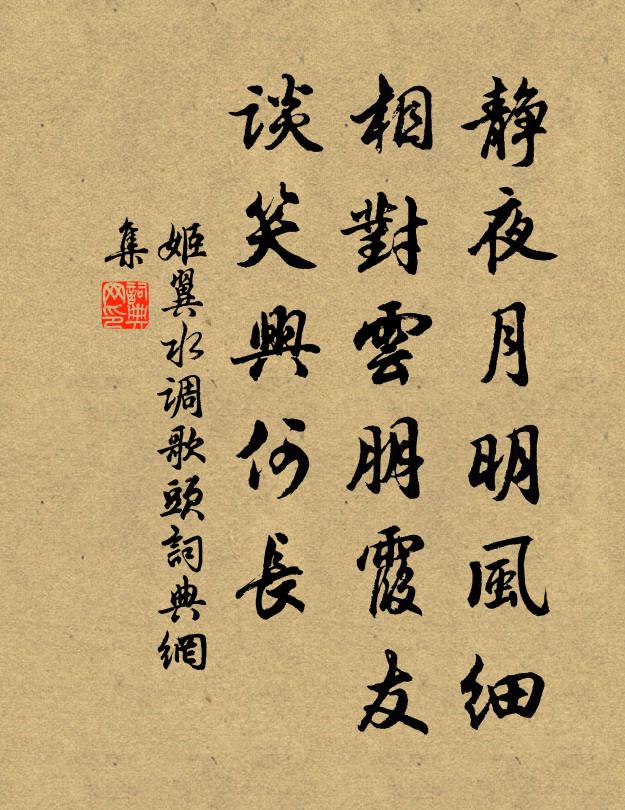 静夜月明風細
相對雲朋霞友
談笑興何長
姬翼水调歌頭詞典網
集
詞典網印